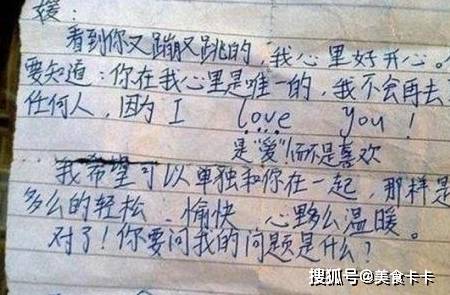 媛：
看到你又蹦又跳的，我心里好开心。
要知道：你在我心里是唯一的，我不会再去
任何人，因为 I love you！
是“爱”而不是喜欢
我希望可以单独和你在一起，那样是
多么的轻松、愉快 心多么温暖。
对了！你要问我的问题是什么？
搜狐号@美食卡卡